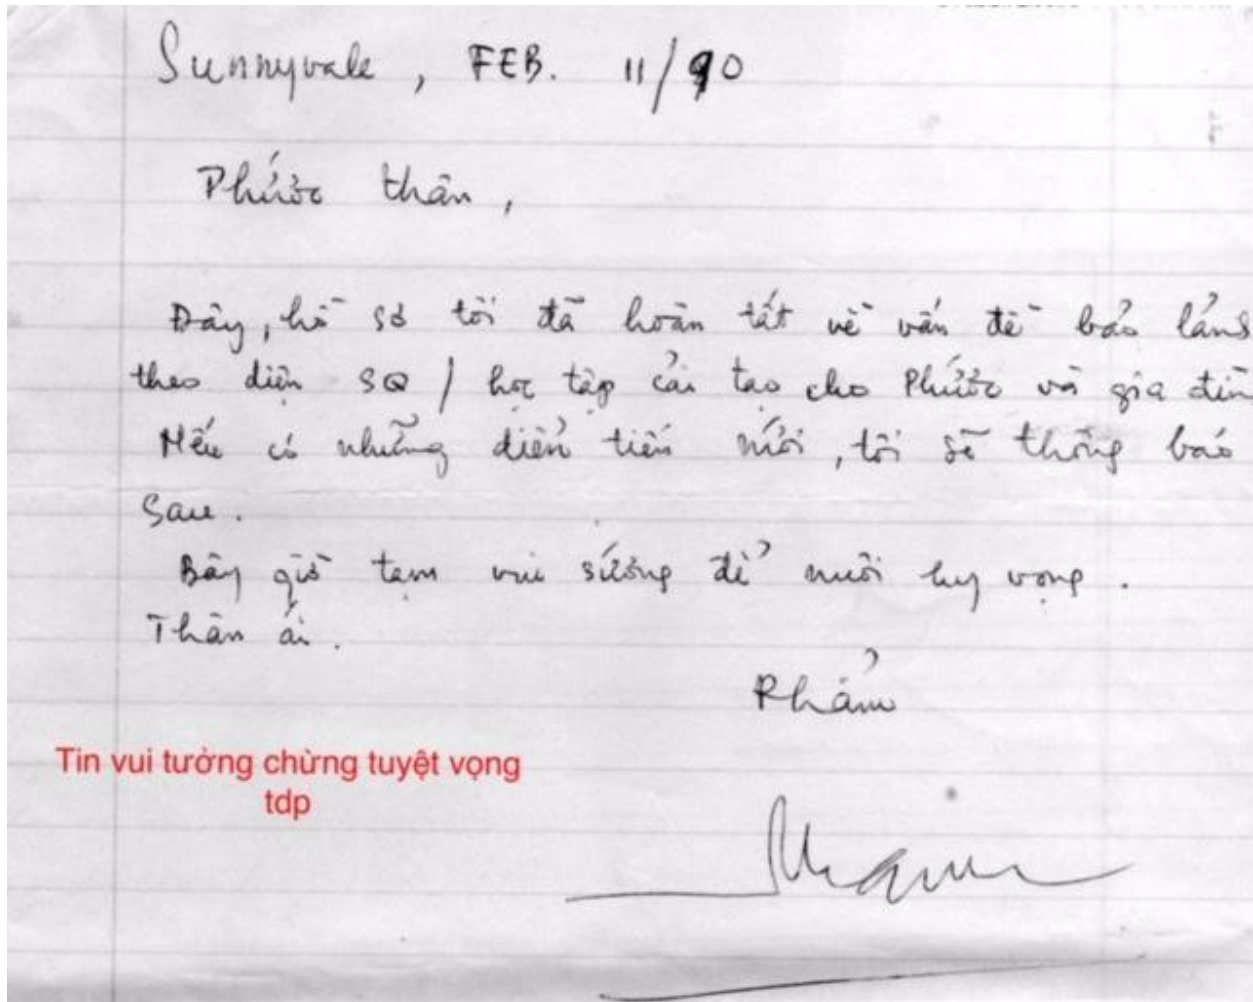 Sunnyvale, FEB. 11/90
Phước thân,
Đây, hồ sơ tôi đã hoàn tất về vấn đề bảo lãnh
theo diện SQ / học tập cải tạo cho Phước và gia đìn
Nếu có những diễn tiến mới, tôi sẽ thông báo
sau.
Bây giờ tạm vui sướng để nuôi hy vọng.
Thân ái.
Phẩm
Tin vui tưởng chừng tuyệt vọng
tdp